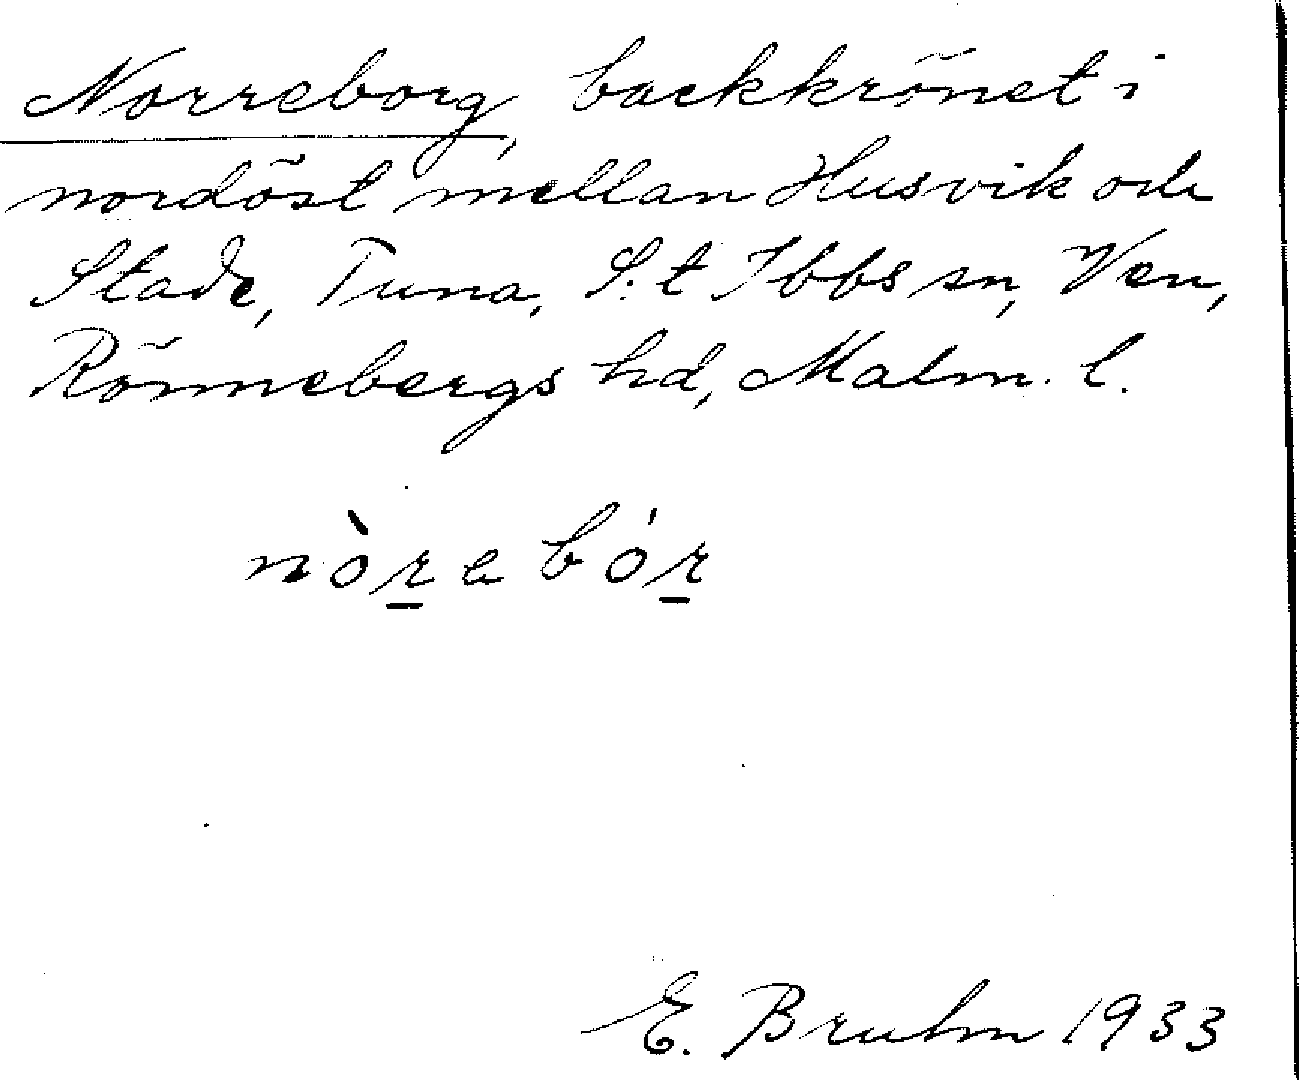 Norreborg, backkrönet i
nordöst mellan Husvik och
Stade, Tuna, S:t Ibbs sn, Ven,
Rönnebergs hd, Malm. l.
nòr̲ebór̲
E. Bruhm 1933